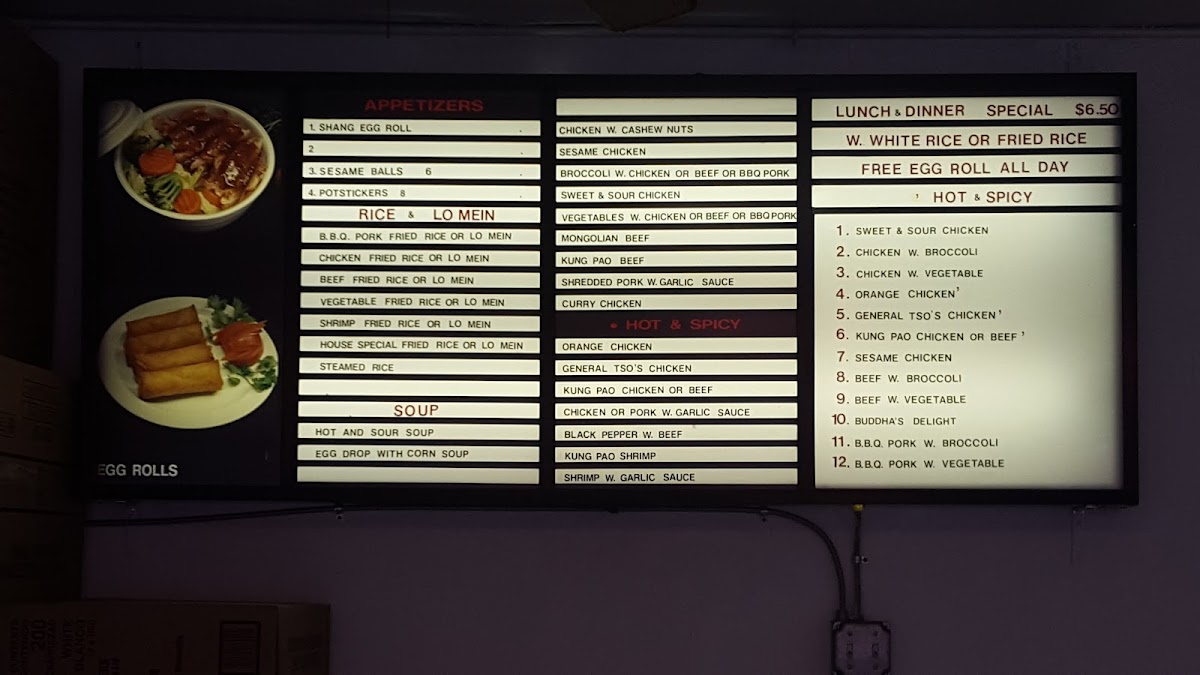 EGG ROLLS
APPETIZERS
1. SHANG EGG ROLL
2
3. SESAME BALLS 6
4. POTSTICKERS 8
RICE & LO MEIN
B.B.Q. PORK FRIED RICE OR LO MEIN
CHICKEN FRIED RICE OR LO MEIN
BEEF FRIED RICE OR LO MEIN
VEGETABLE FRIED RICE OR LO MEIN
SHRIMP FRIED RICE OR LO MEIN
HOUSE SPECIAL FRIED RICE OR LO MEIN
STEAMED RICE
SOUP
HOT AND SOUR SOUP
EGG DROP WITH CORN SOUP
CHICKEN W. CASHEW NUTS
SESAME CHICKEN
BROCCOLI W. CHICKEN OR BEEF OR BBQ PORK
SWEET & SOUR CHICKEN
VEGETABLES W. CHICKEN OR BEEF OR BBQ PORK
MONGOLIAN BEEF
KUNG PAO BEEF
SHREDDED PORK W. GARLIC SAUCE
CURRY CHICKEN
• HOT & SPICY
ORANGE CHICKEN
GENERAL TSO'S CHICKEN
KUNG PAO CHICKEN OR BEEF
CHICKEN OR PORK W. GARLIC SAUCE
BLACK PEPPER W. BEEF
KUNG PAO SHRIMP
SHRIMP W. GARLIC SAUCE
LUNCH & DINNER SPECIAL $6.50
W. WHITE RICE OR FRIED RICE
FREE EGG ROLL ALL DAY
' HOT & SPICY
1. SWEET & SOUR CHICKEN
2. CHICKEN W. BROCCOLI
3. CHICKEN W. VEGETABLE
4. ORANGE CHICKEN '
5. GENERAL TSO'S CHICKEN '
6. KUNG PAO CHICKEN OR BEEF '
7. SESAME CHICKEN
8. BEEF W. BROCCOLI
9. BEEF W. VEGETABLE
10. BUDDHA'S DELIGHT
11. B.B.Q. PORK W. BROCCOLI
12. B.B.Q. PORK W. VEGETABLE
200
WHITE